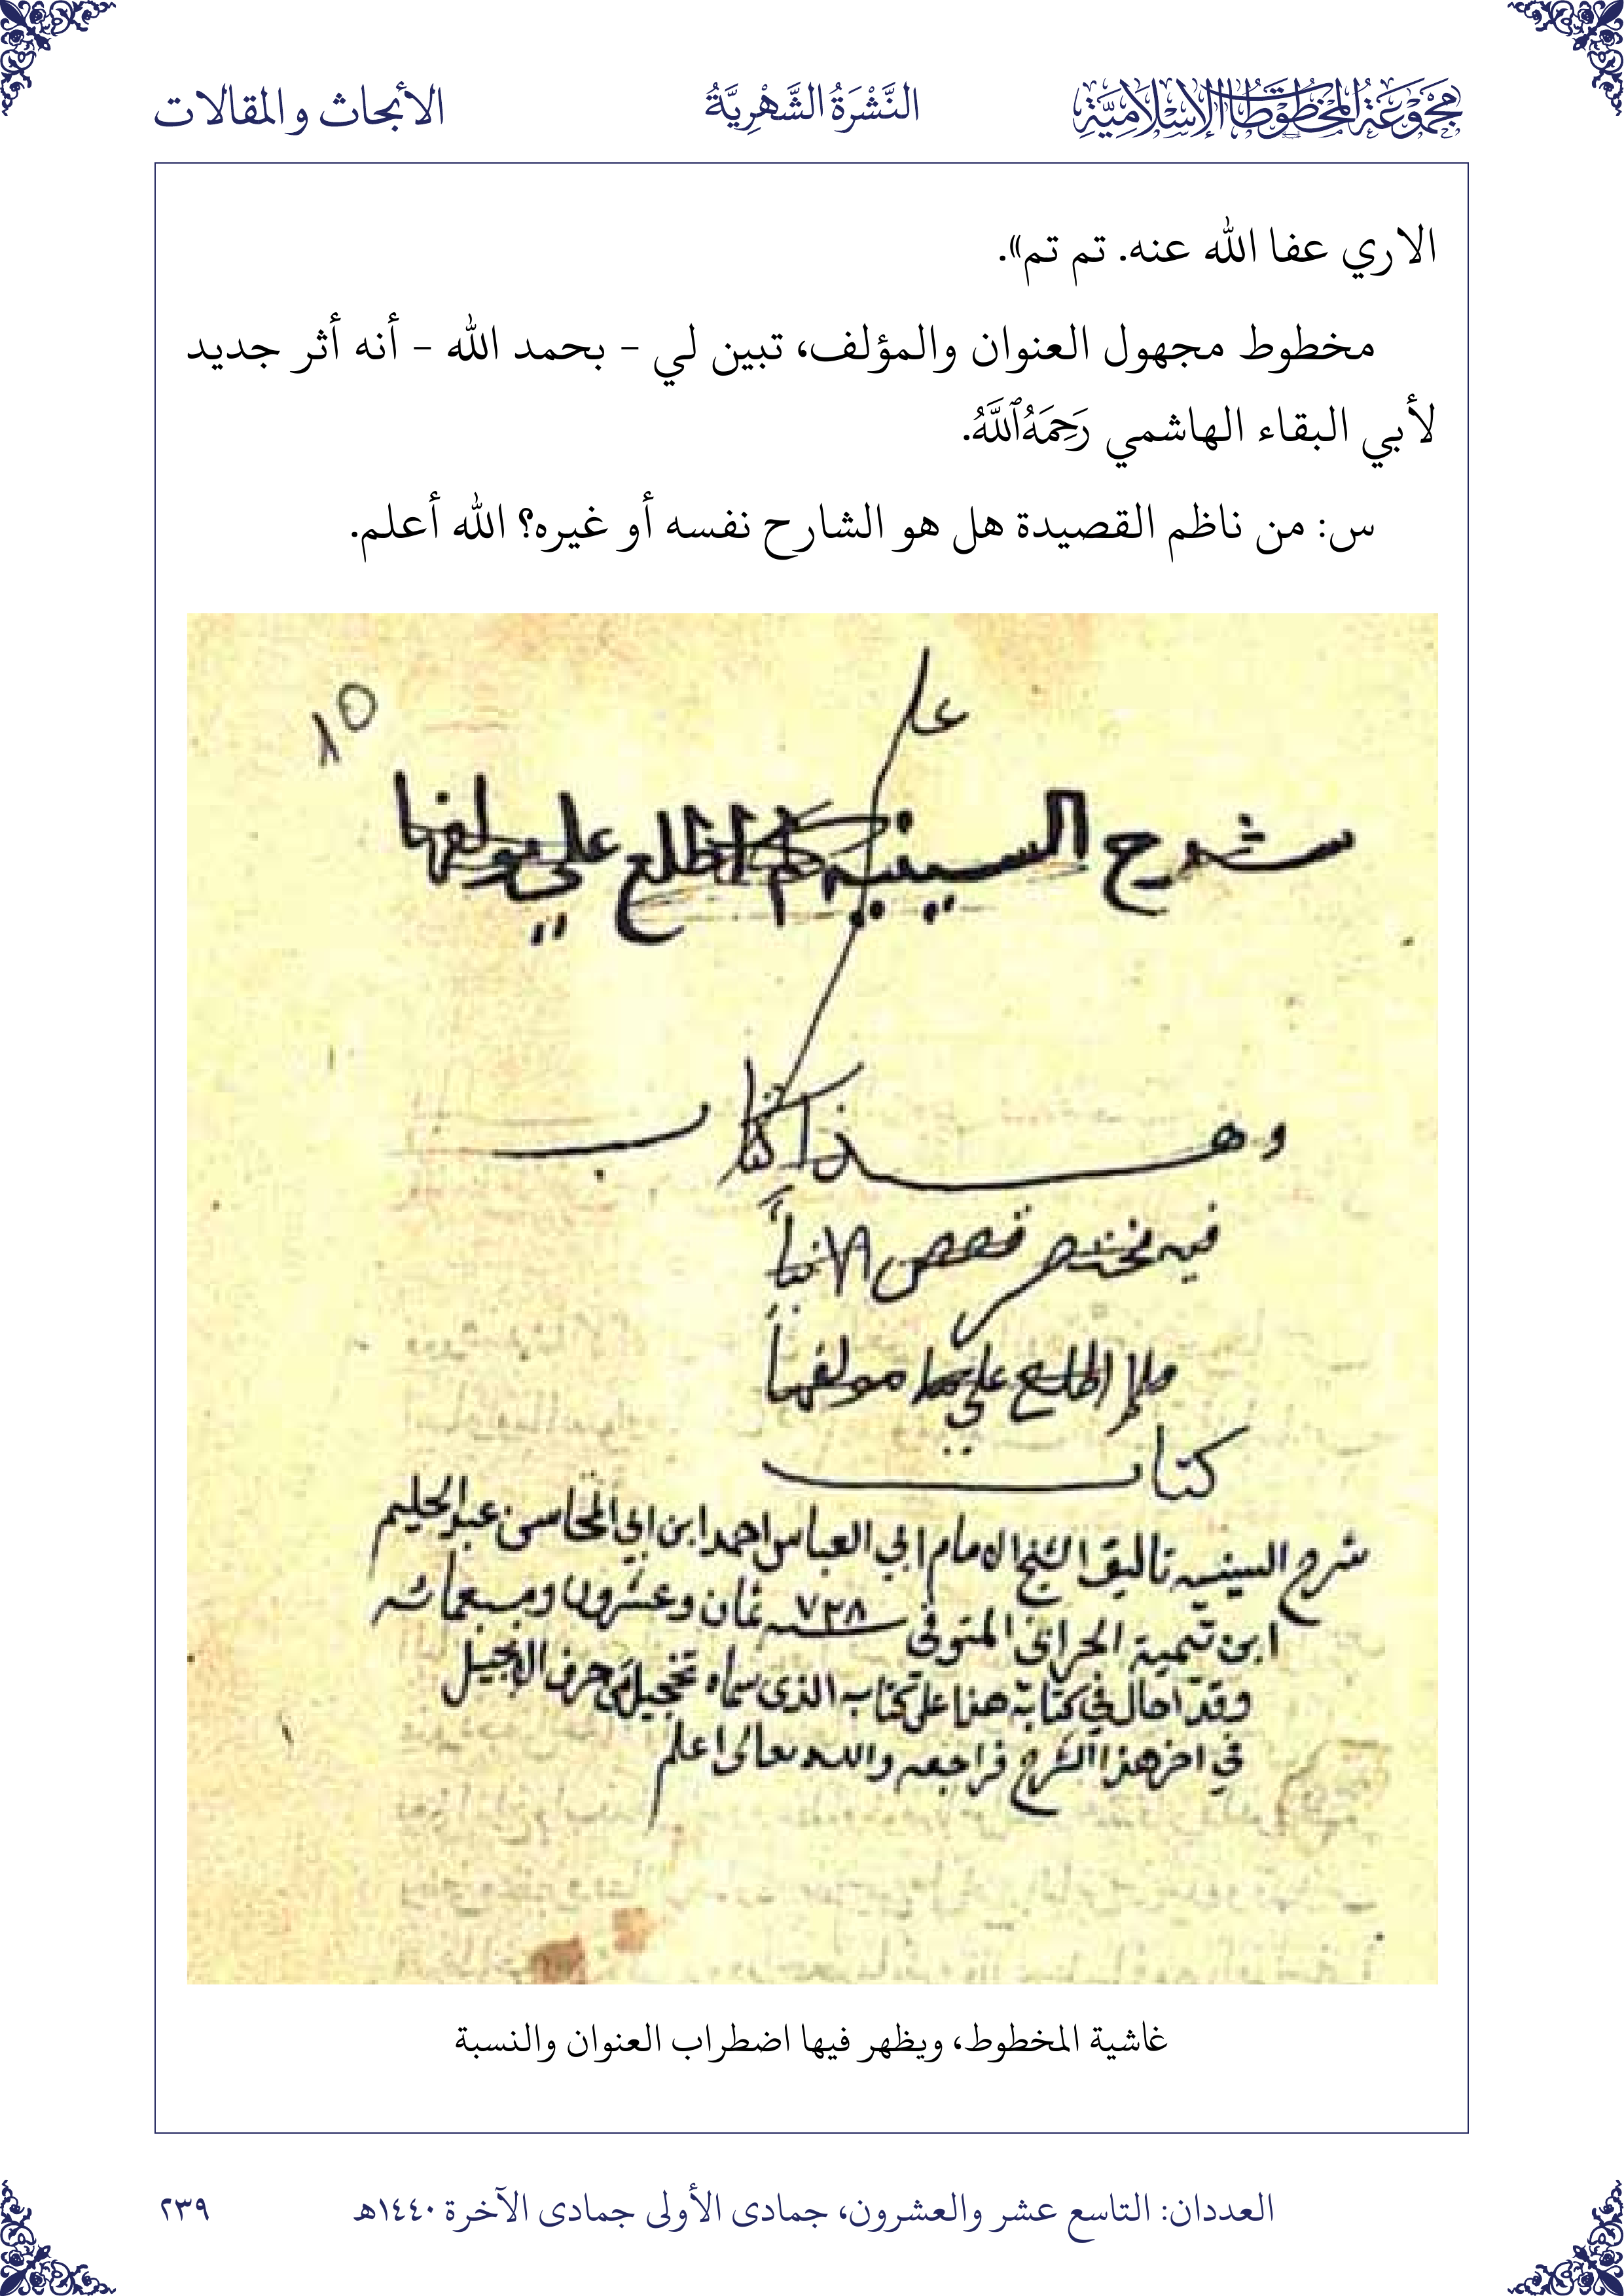 مَجْمُوعَةُ المَخْطُوطَاتِ الإِسْلَامِيَّةِ
النَّشْرَةُ الشَّهْرِيَّةُ
الأبحاث والمقالات
الاري عفا الله عنه. تم تم».
مخطوط مجهول العنوان والمؤلف، تبين لي – بحمد الله – أنه أثر جديد
لأبي البقاء الهاشمي رَحِمَهُ ٱللَّهُ.
س: من ناظم القصيدة هل هو الشارح نفسه أو غيره؟ الله أعلم.
١٥
شرح السينيه لم اطلع علي مولفها
وهذا كتاب
فيه مختصر قصص الانبيا
كتاب
شرح السينيه تاليف الشيخ الامام ابي العباس احمد ابن ابي المحاسن عبد الحليم
ابن تيمية الحراني المتوفي سنه ٧٢٨ ثمان وعشرون وسبعمائه
وقد احال في كتابة هذا على كتابه الذي سماه تخجيل من حرف الانجيل
في اخر هذا الشرح فراجعه والله تعالى اعلم
غاشية المخطوط، ويظهر فيها اضطراب العنوان والنسبة
العددان: التاسع عشر والعشرون، جمادى الأولى جمادى الآخرة ١٤٤٠هـ
٢٣٩